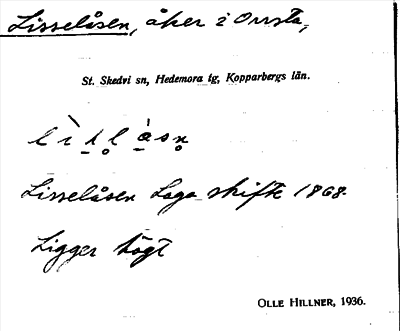 Lisselåsen, åker i Orrsta,
St. Skedvi sn, Hedemora tg, Kopparbergs län.
Lisselåsen Laga skifte 1868.
Ligger högt
OLLE HILLNER, 1936.